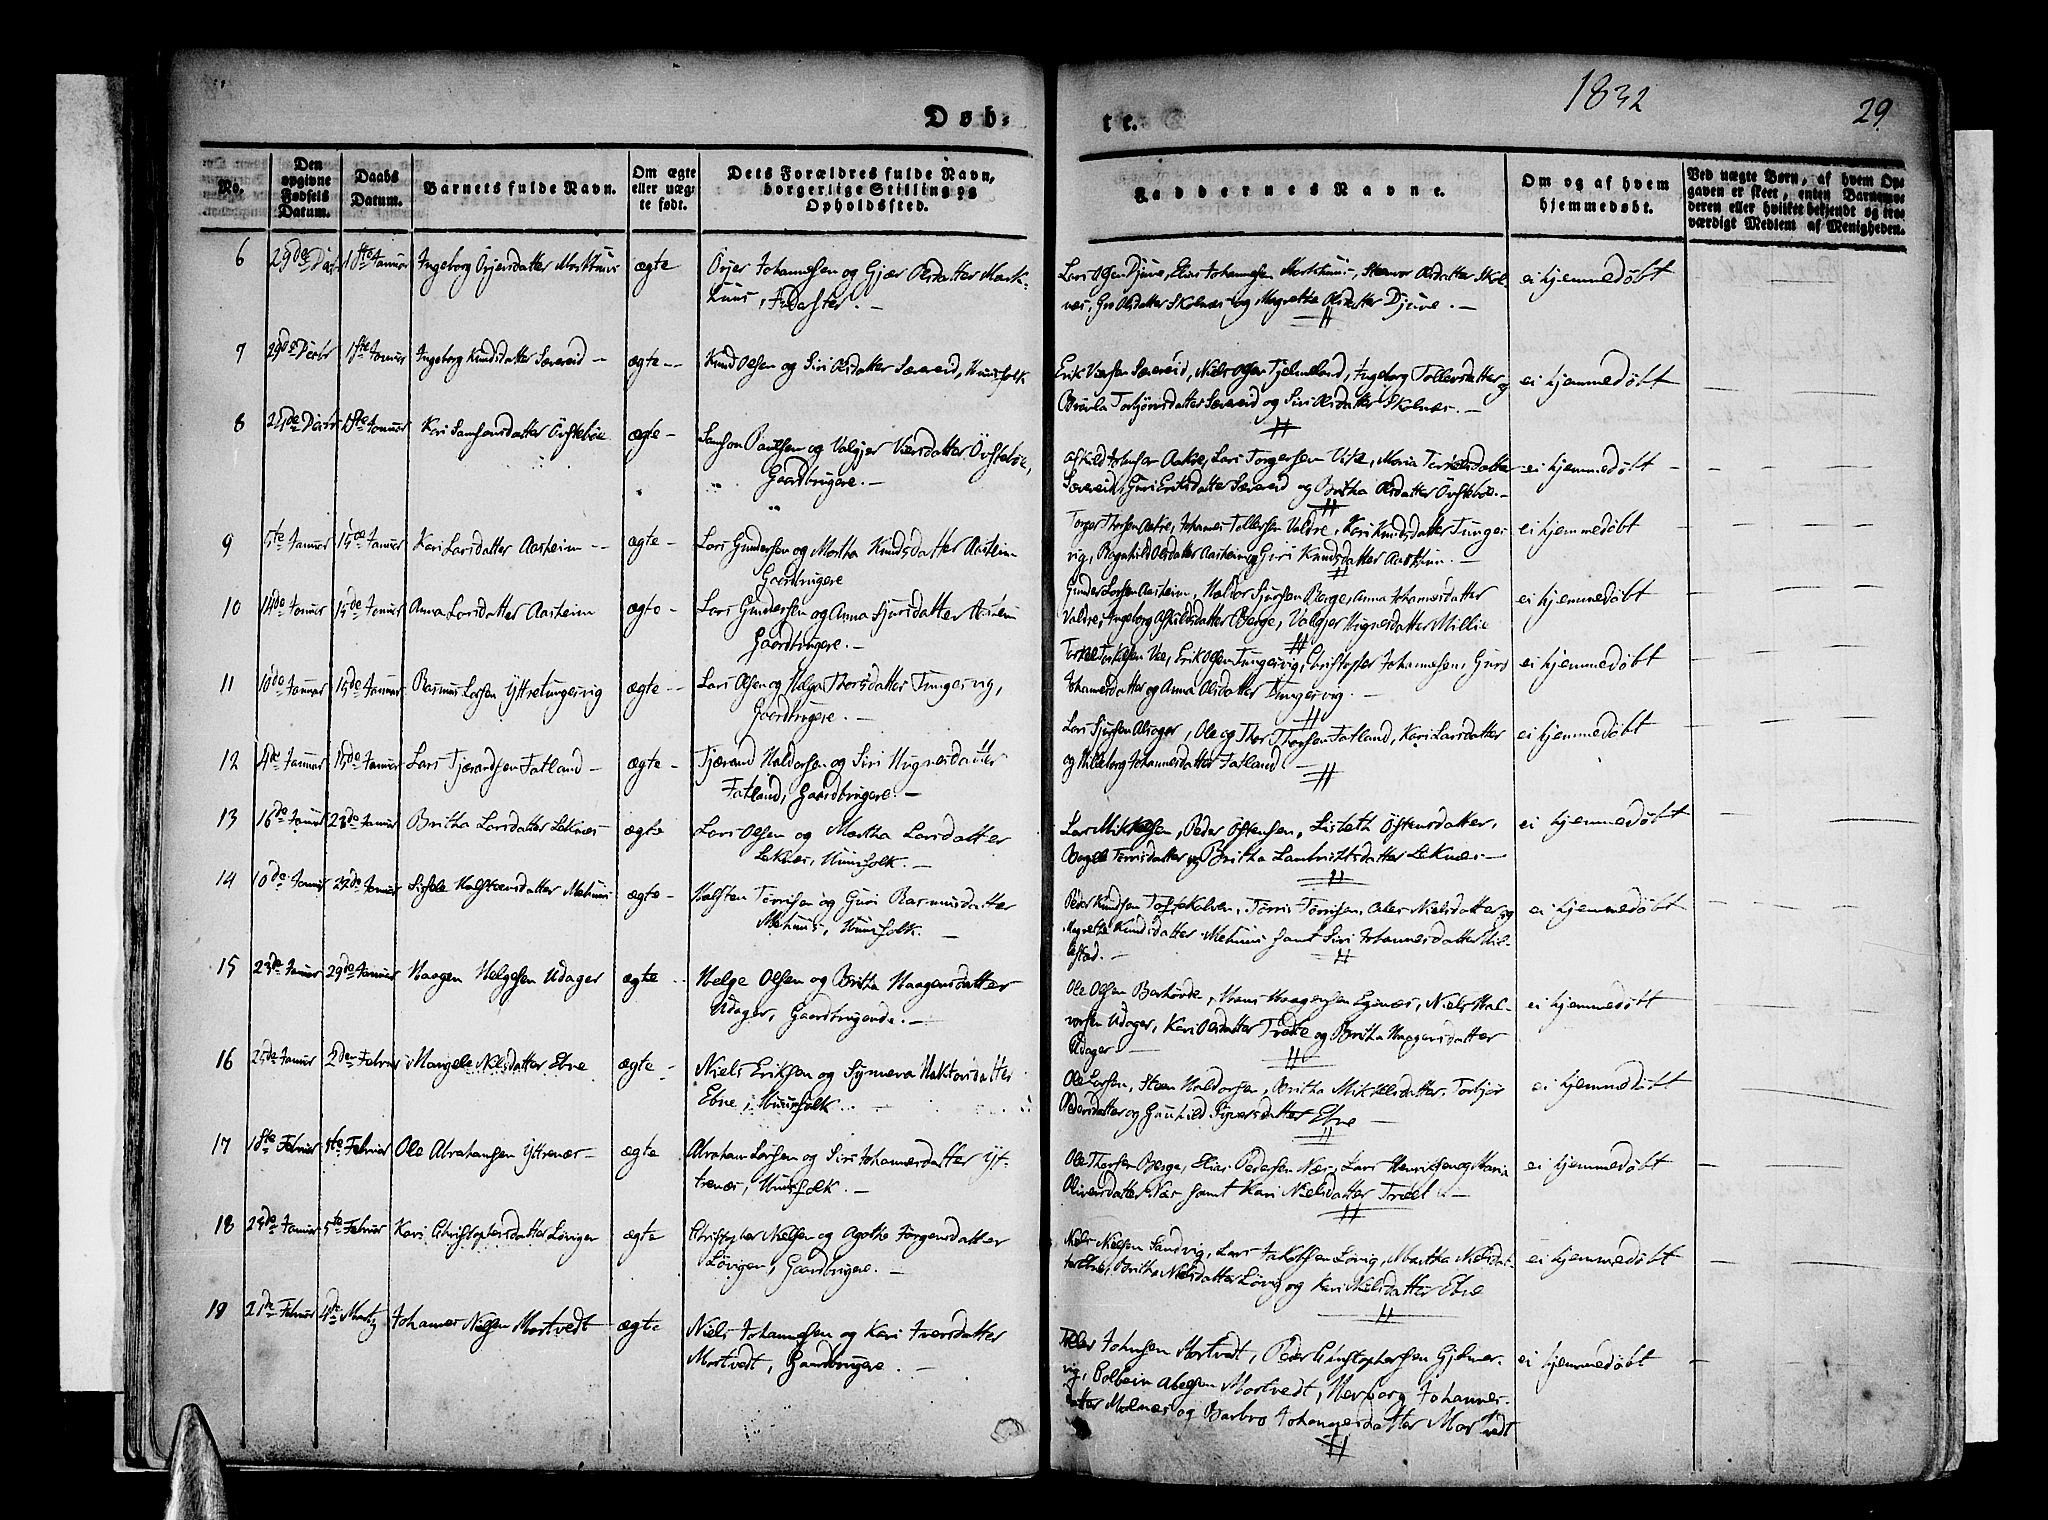 1832
29.
Døb-
te.
No.
Den opgivne Fødsels Datum.
Daabs Datum.
Barnets fulde Navn.
Om ægte eller uægte født.
Dets Forældres fulde Navn, borgerlige Stilling og Opholdssted.
Faddernes Navne.
Om og af hvem hjemmedøbt.
Ved uægte Børn, af hvem Opgaven er skeet, enten Barnemoderen eller hvilket bekjendt og troværdigt Medlem af Menigheden.
6 29de 1ste Januar Ingeborg ægte
Johannesen og Gjær Olsdatter Mark-
huus,
Lars Olsen Djuve, Elias Johannesen Markhuus, Olsdatter Skol-
næs, Olsdatter Skolnæs og Magrethe Olsdatter Djuve. —
ei hjemmedøbt
7 29de Decbr 1ste Januar Ingeborg Knudsdatter Sævereid — ægte —
Knud Olsen og Siri Olsdatter Sævereid, Huusfolk
Erik Sævereid, Niels Olsen Tjelmeland, Ingeborg Tollevsdatter og
Torbjørnsdatter Sævereid og Siri Olsdatter Skolnæs. —
ei hjemmedøbt
8 1ste Januar Kari Samsonsdatter Østebøe ægte —
Samson Paulsen og Valgjer Østebøe,
Gaardbrugere. —
Aakre, Lars Torgersen Maria
Guri Eriksdatter Sævereid og Britha Olsdatter Østebøe. —
ei hjemmedøbt —
9 5te Januar 15de Januar Kari Larsdatter Aasheim — ægte —
Lars Gundersen og Martha Knudsdatter Aasheim
Gaardbrugere
Torger Thorsen Aakre, Johannes Tollefsen Valdre, Kari Knudsdatter Tunges-
vig, Ragnhild Olsdatter Aasheim og Guri Knudsdatter Aasheim. —
ei hjemmedøbt
10 14de Januar 15de Januar Anna Larsdatter Aasheim ægte —
Lars Gundersen og Anna Sjursdatter Aasheim
Gaardbrugere. —
Gunder Larsen Aasheim, Haldor Sjursen Berge, Anna Johannesdatter
Valdre, Ingeborg Askildsdatter Berge, Valgjer Hognesdatter Millie
ei hjemmedøbt
11 10de Januar 15de Januar Rasmus Larsen Yttretungesvig ægte —
Lars Olsen og Helga Thorsdatter Tungesvig,
Gaardbrugere. —
Erik Olsen Tungesvig, Christopher Johannesen, Guro
Johannesdatter og Anna Olsdatter Tungesvig. —
ei hjemmedøbt
12 4de Januar 15de Januar Lars Tjerandsen Fatland — ægte —
Tjerand Haldorsen og Siri Hognesdatter
Fatland, Gaardbrugere. —
Lars Sjursen Alsager, Ole og Thor Thorsen Fatland, Kari Larsdatter
og Hilleborg Johannesdatter Fatland. —
ei hjemmedøbt
13 16de Januar Januar Britha Larsdatter Leknæs ægte
Lars Olsen og Martha Larsdatter
Leknæs, Huusfolk. —
Lars Mikkelsen, Peder Østensen, Lisbeth Østensdatter,
og Britha Lambrichtsdatter Leknæs —
ei hjemmedøbt
14 10de Januar Januar Halstensdatter Mehuus ægte —
Halsten Tørrisen og Guri Rasmusdatter
Mehuus, Huusfolk. —
Peder Knudsen Tørris Tørrisen, Nielsdatter og
Magrethe Knudsdatter Mehuus samt Siri Johannesdatter Mil-
lestad. —
ei hjemmedøbt
15 23de Januar 29de Januar Haagen Helgesen Udager ægte —
Helge Olsen og Britha Haagensdatter
Udager, Gaardbrugende. —
Ole Olsen Hans Haagensen Egenæs, Niels Hal-
vorsen Udager, Kari Olsdatter Tvedte og Britha Haagensdatter
Udager. —
ei hjemmedøbt
16 Januar 2den Februar Nielsdatter Ebne ægte —
Niels Eriksen og Synneva
Ebne, Huusfolk. —
Ole Larsen, Steen Haldorsen, Britha Mikkelsdatter, Torbjør
Pedersdatter og Gunhild Ebne —
ei hjemmedøbt
17 1ste Februar 5te Februar Ole Abrahamsen Yttrenæs — ægte
Abraham Larsen og Siri Johannesdatter Yt-
trenæs, Huusfolk. —
Ole Thorsen Berge, Elias Pedersen Næs, Lars Henriksen og Maria
Oliversdatter Næs samt Kari Nielsdatter —
ei hjemmedøbt
18 Januar 5te Februar Kari Christophersdatter Løvigen ægte
Christopher Nielsen og Agathe Jørgensdatter
Løvigen, Gaardbrugere. —
Niels Nielsen Sandvig, Lars Jakobsen Løvig, Martha Nielsdat-
ter Ebne, Britha Nielsdatter Løvig og Kari Nielsdatter Ebne
ei hjemmedøbt
19 Februar 4de Martz Johannes Nielsen Mortvedt ægte
Niels Johannesen og Kari Iversdatter
Mortvedt, Gaardbrugere. —
Johnsen Mortvedt, Peder Christophersen Gjelmer-
vig, Abelsen Mortvedt, Herborg Johannes-
datter Molnæs og Barbro Johannesdatter Mortvedt
ei hjemmedøbt